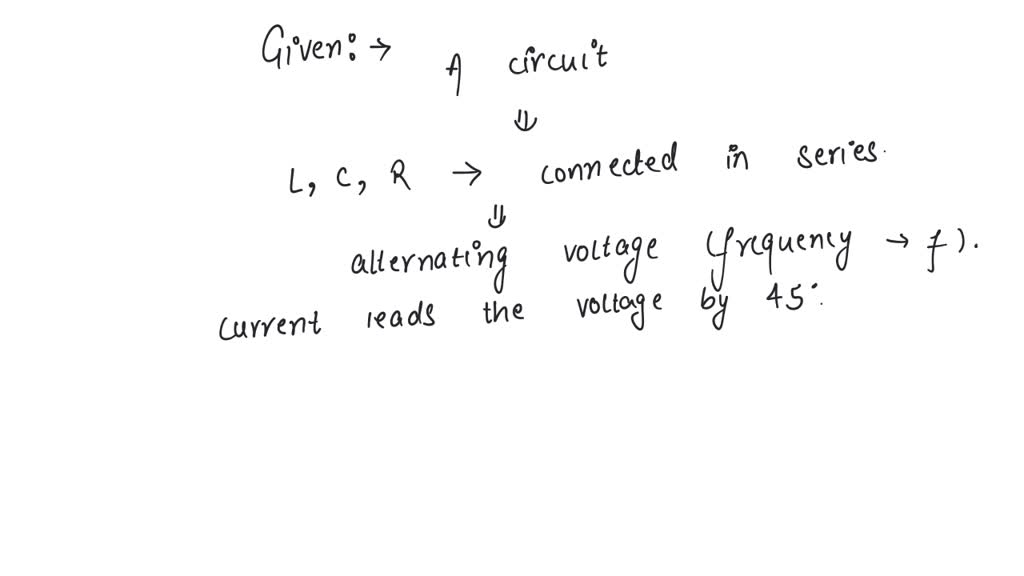 Given:→ A circuit
⇓
L, C, R → connected in series.
⇓
alternating voltage (frequency → f).
current leads the voltage by 45°.